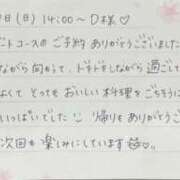 (日) 14:00〜 D様♡
ートコースのご予約 ありがとうございました
ながら向かって、ドキドキしながら過ごして
よくて とっても おいしい料理をごちそうに
いっぱいでした 帰りもありがとうご
次回も楽しみにしています